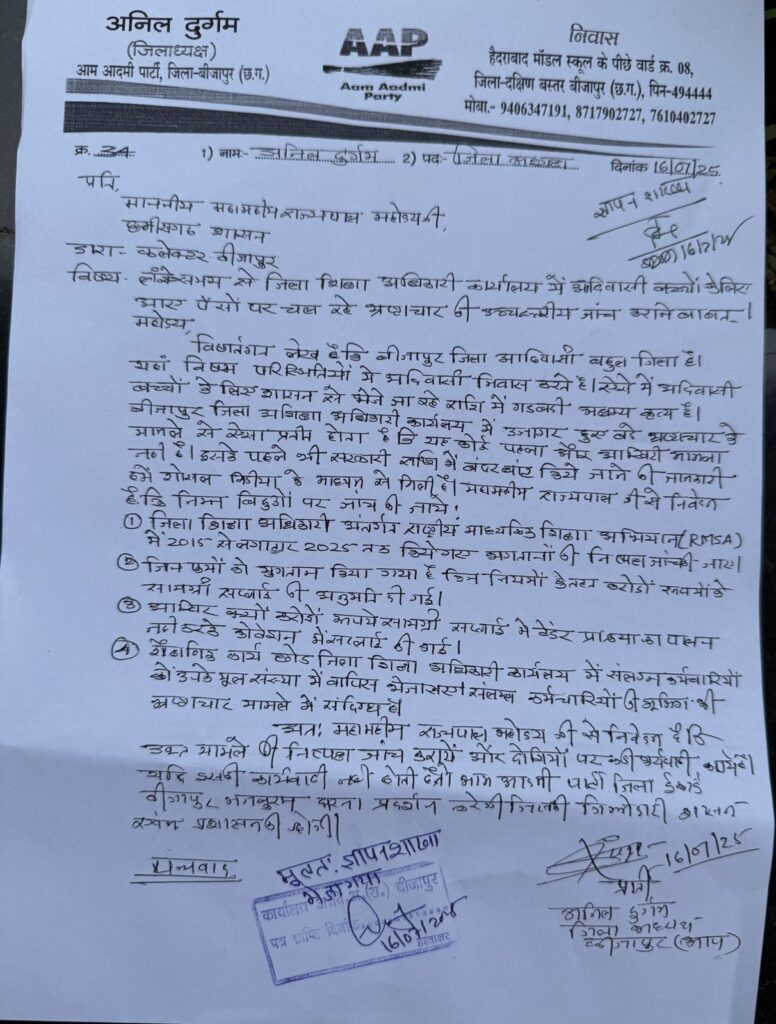 अनिल दुर्गम
(जिलाध्यक्ष)
आम आदमी पार्टी, जिला-बीजापुर (छ.ग.)
AAP
Aam Aadmi
Party
निवास
हैदराबाद मॉडल स्कूल के पीछे वार्ड क्र. 08,
जिला-दक्षिण बस्तर बीजापुर (छ.ग.), पिन-494444
मोबा.- 9406347191, 8717902727, 7610402727
क्र. 34 1) नाम:- अनिल दुर्गम 2) पद:- जिला अध्यक्ष दिनांक 16/07/25
प्रति,
माननीय महामहीम राज्यपाल महोदय जी,
छत्तीसगढ़ शासन
ज्ञापन शाखा
द्वारा- कलेक्टर बीजापुर
विषय:- लंबे समय से जिला शिक्षा अधिकारी कार्यालय में आदिवासी बच्चों के लिए
आए पैसों पर चल रहे भ्रष्टाचार की उच्चस्तरीय जांच कराने बाबत्।
महोदय,
विषयांतर्गत लेख है कि बीजापुर जिला आदिवासी बाहुल जिला है।
यहां विषम परिस्थितियों में आदिवासी निवास करते है। ऐसे में आदिवासी
बच्चों के लिए शासन से भेजे जा रहे राशि में गडबडी अक्षम्य कृत्य है।
बीजापुर जिला शिक्षा अधिकारी कार्यालय में उजागर हुए बडे भ्रष्टाचार के
मामले से ऐसा प्रतीत होता है कि यह कोई पहला और आखिरी मामला
नही है। इसके पहले भी सरकारी राशि में बंदरबांट किये जाने की जानकारी
हमें सोशल मिडीया के माध्यम से मिली है। महामहीम राज्यपाल जी से निवेदन
है कि निम्न बिंदुओं पर जांच की जाये!
① जिला शिक्षा अधिकारी अंतर्गत राष्ट्रीय माध्यमिक शिक्षा अभियान (RMSA)
में 2015 से लगातार 2025 तक किये गए भुगतानों की निष्पक्ष जांच की जाए।
② जिन फर्मो को भुगतान किया गया है किन नियमों के तहत करोडों रूपयों के
सामग्री सप्लाई की अनुमति दी गई।
③ आखिर क्यों करोडों रूपये सामग्री सप्लाई में टेंडर प्रक्रिया का पालन
नही करके कोटेशन में सप्लाई की गई।
④ शैक्षणिक कार्य छोड जिला शिक्षा अधिकारी कार्यालय में संलग्न कर्मचारियों
को उनके मूल संस्था में वापिस भेजा जाए संलग्न कर्मचारियों की भूमिका भी
भ्रष्टाचार मामले में संदिग्ध है।
अतः महामहीम राज्यपाल महोदय जी से निवेदन है कि
उक्त मामले की निष्पक्ष जांच करायें और दोषियों पर कडी कार्यवाही
यदि कार्यवाही नही होती है तो आम आदमी पार्टी जिला ईकाई
बीजापुर धरना प्रदर्शन करेगी जिसकी जिम्मेदारी शासन
एवंम प्रशासन की होगी।
धन्यवाद
मूलतः ज्ञापन शाखा
भेजा गया
कार्यालय बीजापुर
पत्र प्राप्ति दिनांक
हस्ताक्षर
16/07/25
प्रार्थी
अनिल दुर्गम
जिला अध्यक्ष
बीजापुर (आप)